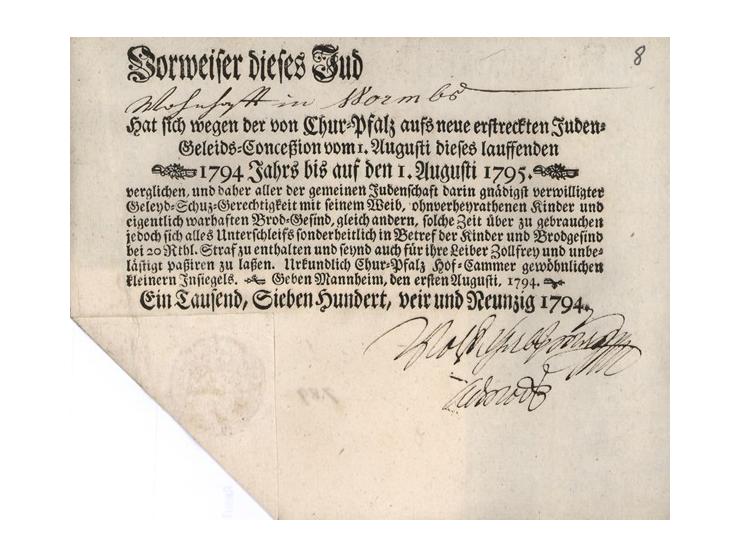 8
Vorweiser dieses Jud
Wohnhafft in Wormbs
Hat sich wegen der von Chur-Pfalz aufs neue erstreckten Juden-
Geleids-Conceßion vom 1. Augusti dieses lauffenden
1794 Jahrs bis auf den 1. Augusti 1795.
verglichen, und daher aller der gemeinen Judenschaft darin gnädigst verwilligter
Geleyd-Schuz-Gerechtigkeit mit seinem Weib, ohnverheyrathenen Kinder und
eigentlich warhaften Brod-Gesind, gleich andern, solche Zeit über zu gebrauchen
jedoch sich alles Unterschleifs sonderheitlich in Betref der Kinder und Brodgesind
bei 20 Rthl. Straf zu enthalten und seynd auch für ihre Leiber Zollfrey und unbe-
lästigt paßiren zu laßen. Urkundlich Chur-Pfalz Hof-Cammer gewöhnlichen
kleinern Insiegels. Geben Mannheim, den ersten Augusti, 1794.
Ein Tausend, Sieben Hundert, veir und Neunzig 1794.